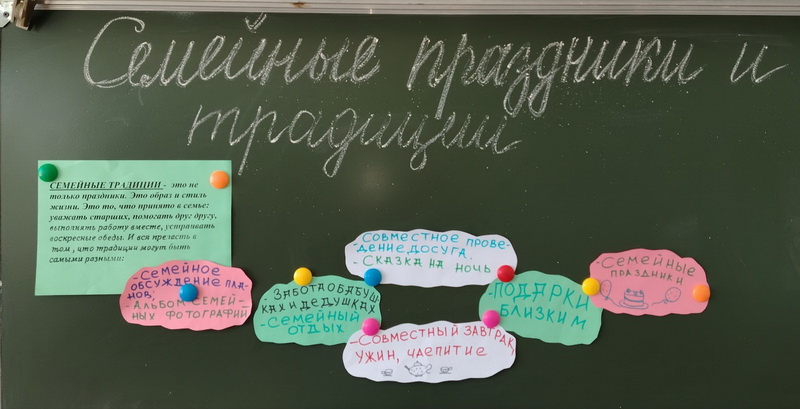 Семейные праздники и
традиции
СЕМЕЙНЫЕ ТРАДИЦИИ - это не
только праздники. Это образ и стиль
жизни. Это то, что принято в семье:
уважать старших, помогать друг другу,
выполнять работу вместе, устраивать
воскресные обеды. И вся прелесть в
том, что традиции могут быть
самыми разными:
-Семейное
обсуждение пла-
нов,
-Альбом семей-
ных фотографий
-Забота о бабуш
ках и дедушках
-Семейный
отдых
-Совместное прове-
дение досуга.
-Сказка на ночь
-Совместный завтрак,
ужин, чаепитие
-Подарки
близким
-Семейные
праздники